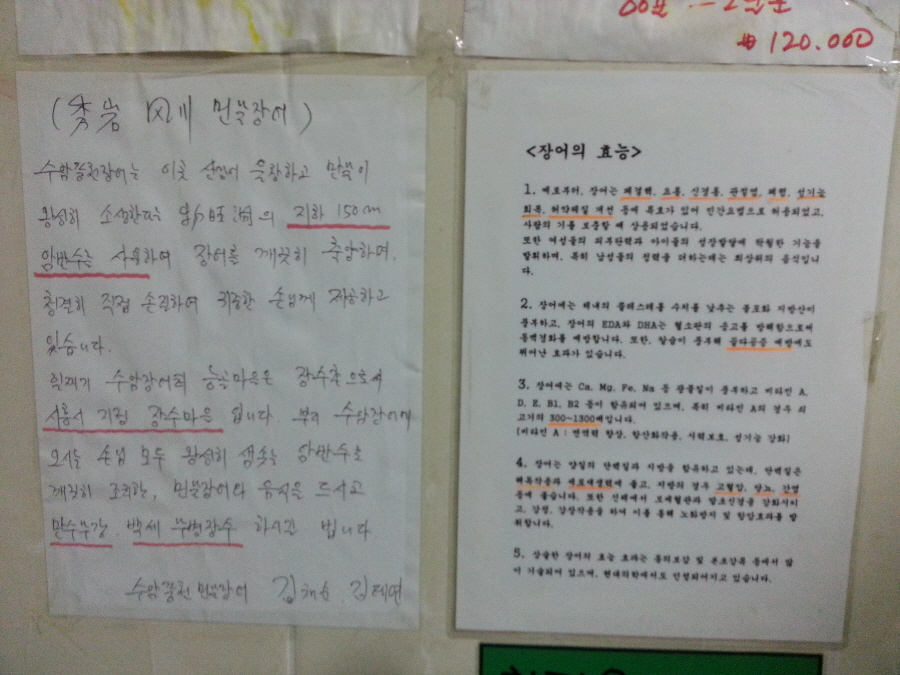 ₩120.000
(秀岩 민물장어)
수암풍천장어는 이곳 웅장하고 만물이
왕성히 소생한다는 의 지하 150m
암반수를 사용하여 장어를 깨끗히 하여,
청결히 직접 손질하여 귀중한 손님께 제공하고
있습니다.
수암장어의 장수촌으로서
지정 장수마을 입니다. 부디 수암장어에
오시는 손님 모두 왕성히 샘솟는 암반수로
깨끗히 조리한, 민물장어와 음식을 드시고
만수무강, 백세 무병장수 하시길 빕니다
수암풍천 민물장어
<장어의 효능>
1. 예로부터, 장어는 폐결핵, 요통, 신경통, 관절염, 폐렴, 성기능
회복, 허약체질 개선 등에 효과가 있어 민간요법으로 허용되었고,
사람의 기를 보충할 때 상용되었습니다.
또한 여성들의 피부탄력과 아이들의 성장발달에 탁월한 기능을
발휘하며, 특히 남성들의 정력을 더하는데는 최상위의 음식입니
다.
2. 장어에는 체내의 콜레스테롤 수치를 낮추는 불포화 지방산이
풍부하고, 장어의 EDA와 DHA는 혈소판의 응고를 방해함으로써
동맥경화를 예방합니다. 또한, 칼슘이 풍부해 골다공증 예방에도
뛰어난 효과가 있습니다.
3. 장어에는 Ca, Mg, Fe, Na 등 광물질이 풍부하고 비타민 A,
D, E, B1, B2 등이 함유되어 있으며, 특히 비타민 A의 경우 쇠
고기의 300~1300배입니다.
(비타민 A : 면역력 향상, 항산화작용, 시력보호, 성기능 강화)
4. 장어는 양질의 단백질과 지방을 함유하고 있는데, 단백질은
해독작용과 세포재생력에 좋고, 지방의 경우 고혈압, 당뇨, 간염
등에 좋습니다. 또한 신체에서 모세혈관과 말초신경을 강화시키
고, 강정, 강장작용을 하며 이를 통해 노화방지 및 항암효과를 발
휘합니다.
5. 상술한 장어의 효능 효과는 동의보감 및 본초강목 등에서 많
이 기술되어 있으며, 현대의학에서도 인정되어지고 있습니다.